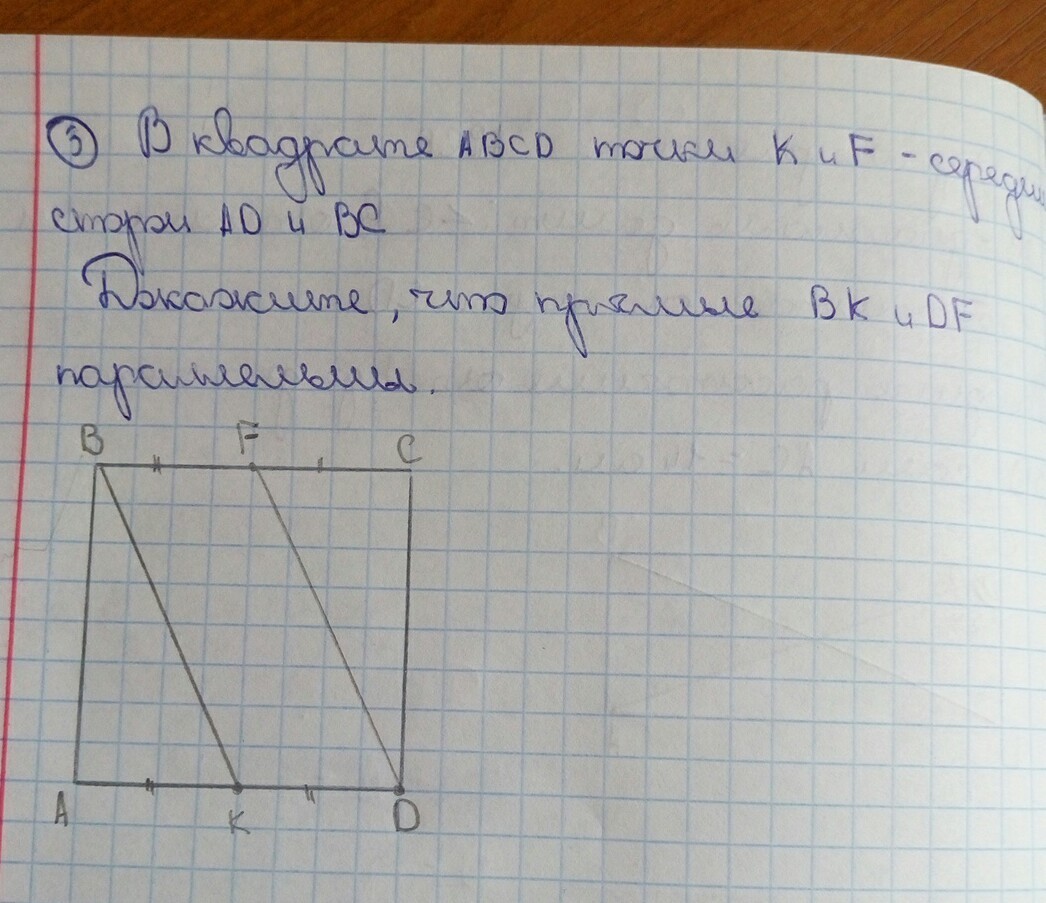 ③ В квадрате ABCD точки K и F - середин
сторон AD и BC
Докажите, что прямые BK и DF
параллельны.
B F C
A K D